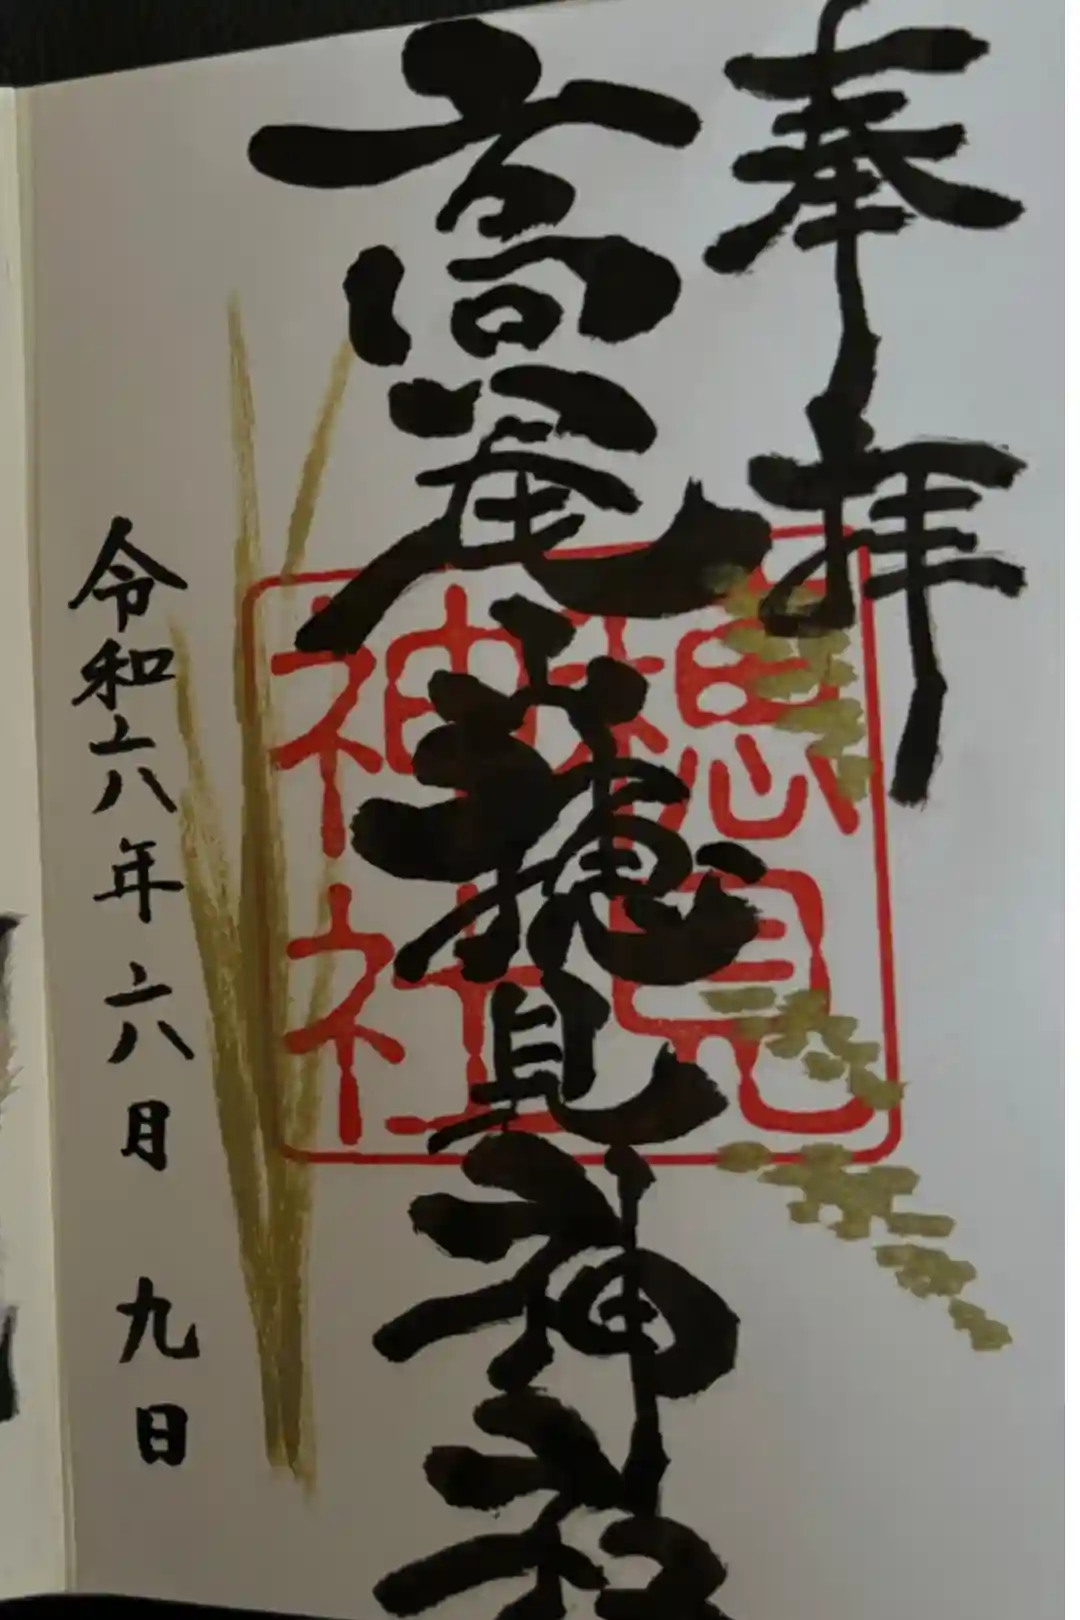 奉拝
高尾山穂見神社
穂見
神社
令和六年六月九日